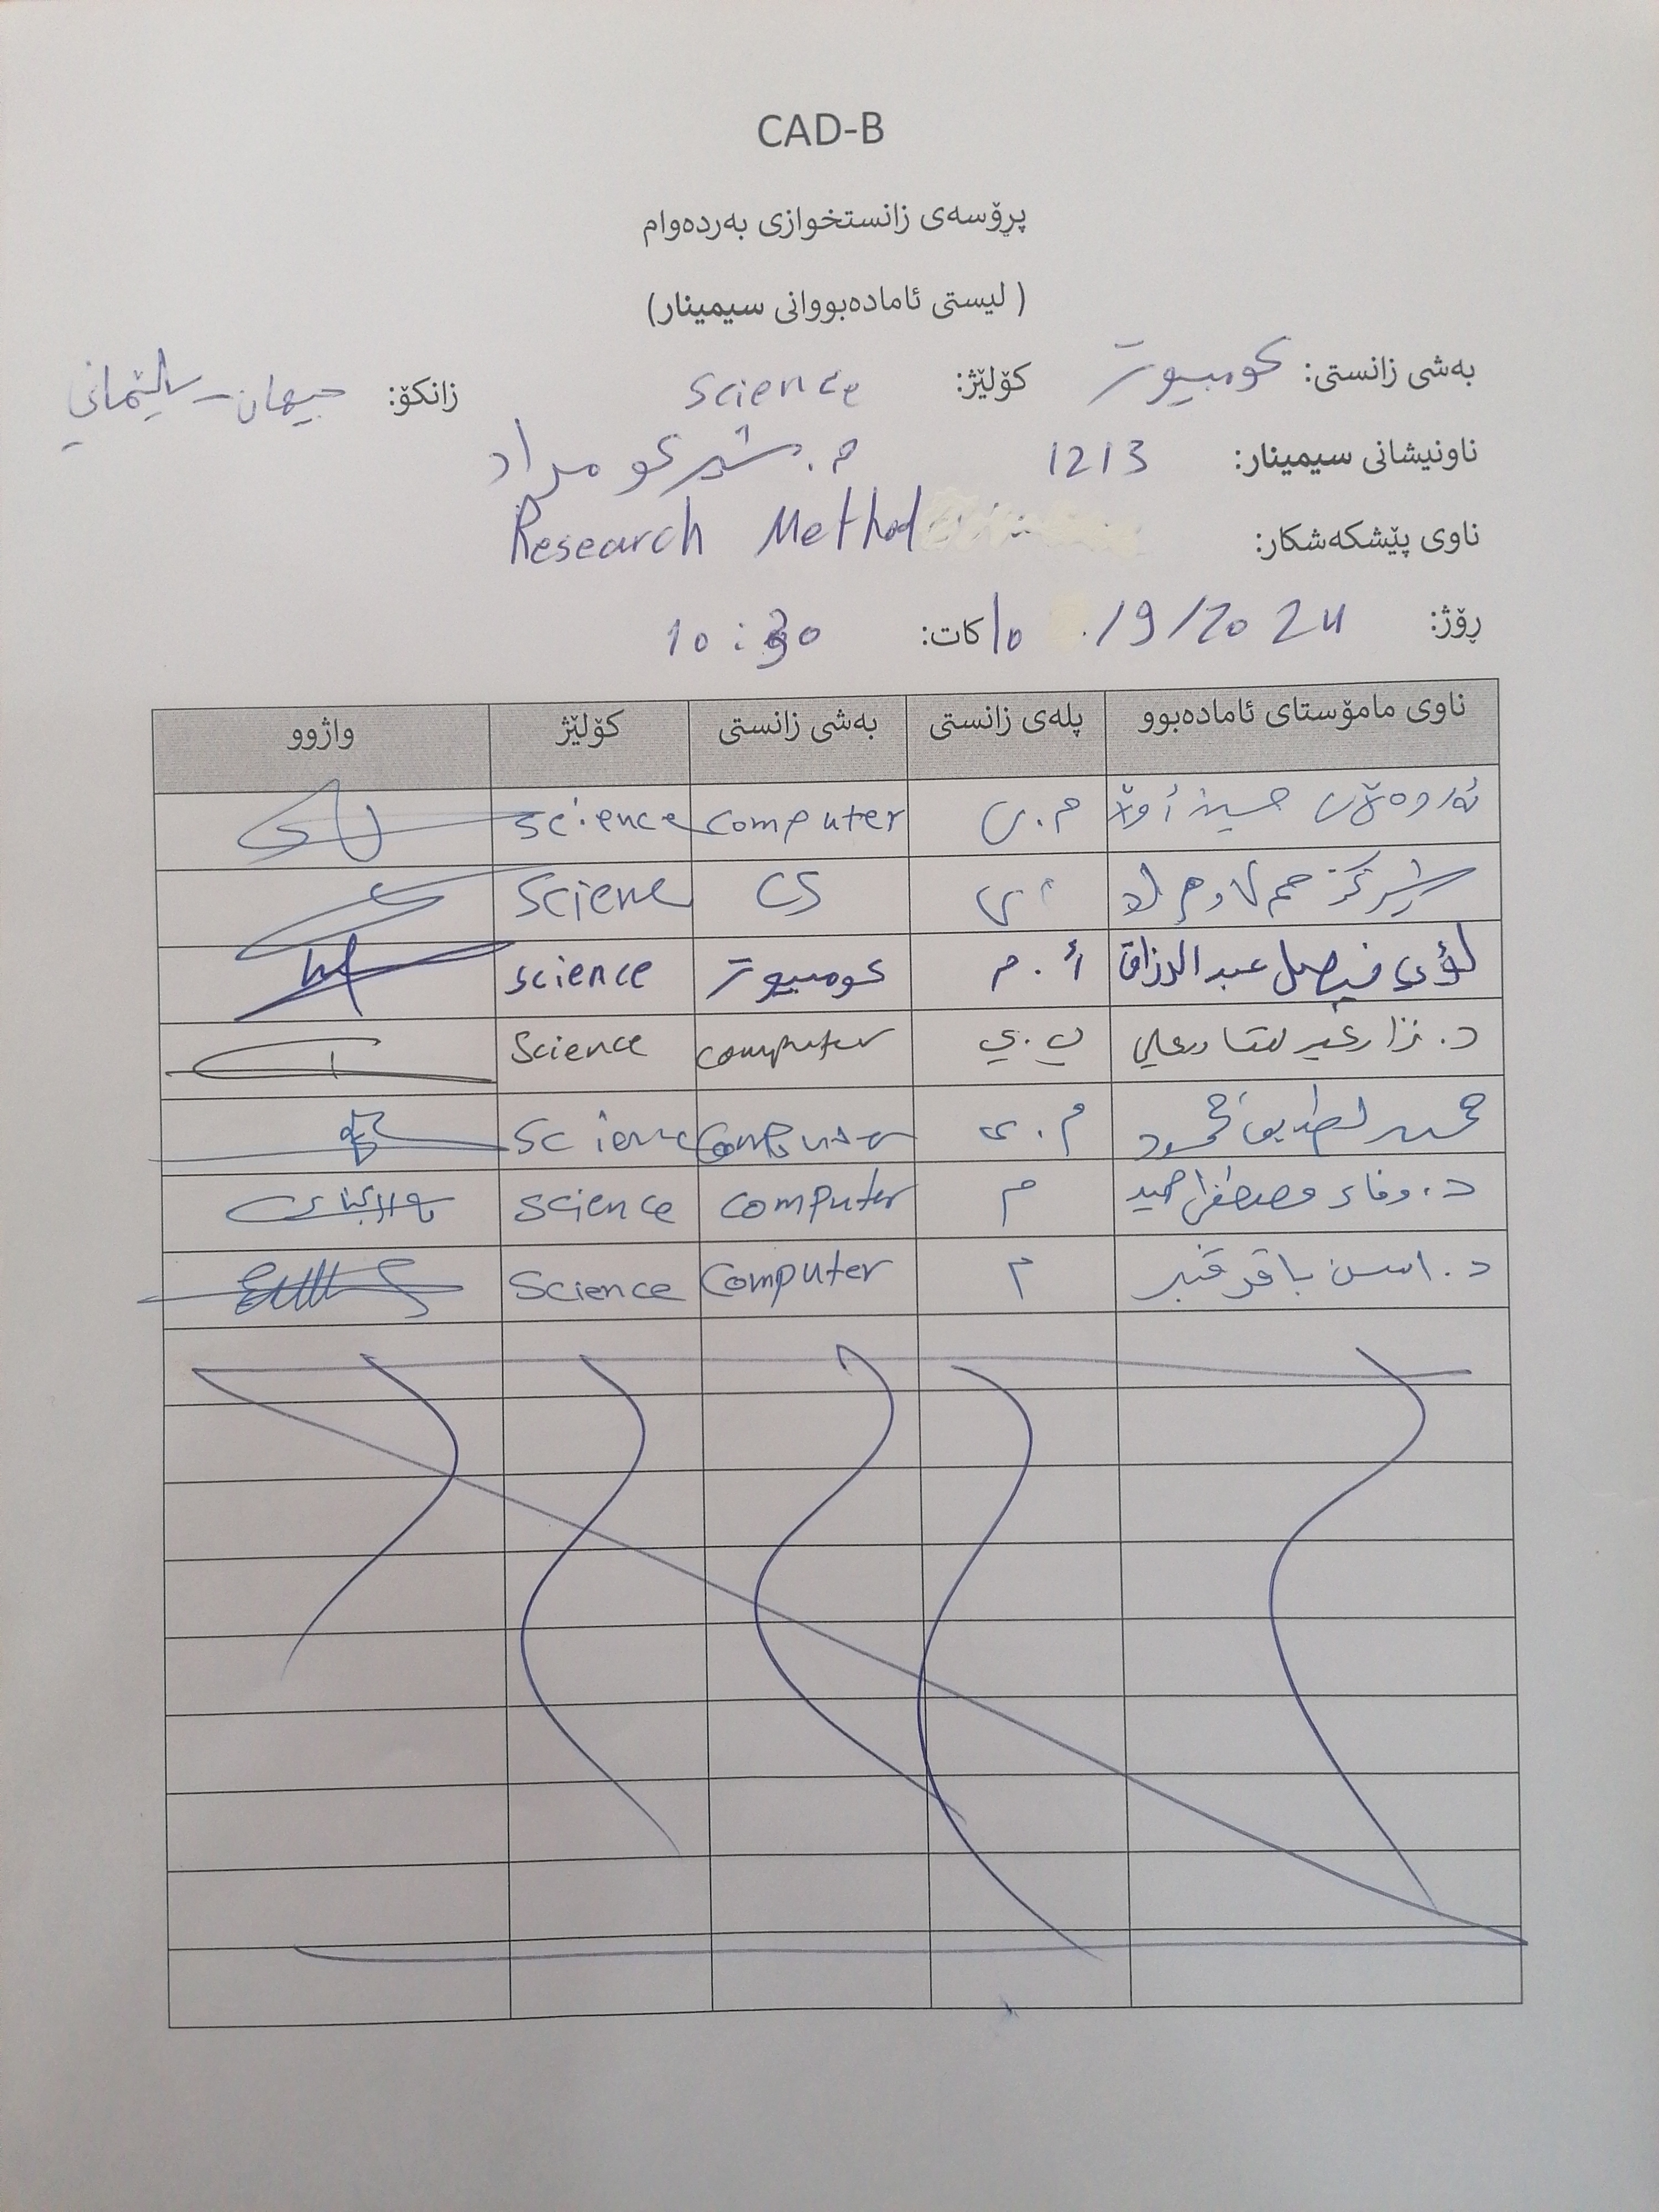 CAD-B
پرۆسەی زانستخوازی بەردەوام
( لیستی ئامادەبووانی سیمینار)
بەشی زانستی: کومبیوتر کۆلێژ: Science زانکۆ: جیهان - سلێمانی
ناونیشانی سیمینار: 1213 م. شیرکو مراد
ناوی پێشکەشکار: Research Method
ڕۆژ: 10/9/2024 کات: 10:30
ناوی مامۆستای ئامادەبوو پلەی زانستی بەشی زانستی کۆلێژ واژوو
حسین م.ی computer science
ی CS Scienc
لؤي فيصل عبد الرزاق أ.م کومبیوتر science
د. نزار علي پ.ی computer Science
محمود م.ی Science
د. وفاء مصطفى حميد م computer science
د. باقر قنبر م Computer Science